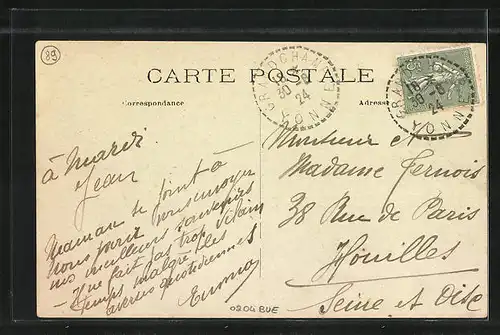 89
CARTE POSTALE
Correspondance
Adresse
GRANDCHAMP
18
30 - 8
24
YONNE
GRANDCHAMP
18
30 - 8
24
YONNE
à mardi
Jean
Maman se joint à
nous pour vous envoyer
nos meilleurs souvenirs
- Il ne fait pas trop vilain
temps malgré les
averses quotidiennes
Monsieur et
Madame Fernois
38 Rue de Paris
Houilles
Seine et Oise
0204 BUE